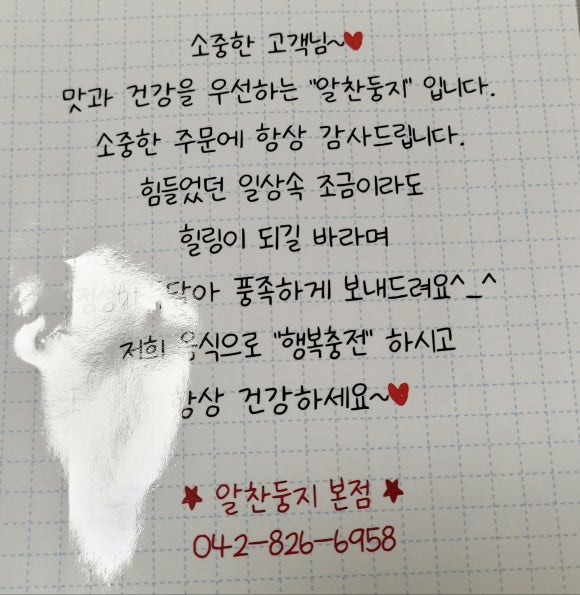 소중한 고객님~♥
맛과 건강을 우선하는 "알찬둥지" 입니다.
소중한 주문에 항상 감사드립니다.
힘들었던 일상속 조금이라도
힐링이 되길 바라며
풍족하게 보내드려요^_^
저희 음식으로 "행복충전" 하시고
항상 건강하세요~♥
★ 알찬둥지 본점 ★
042-826-6958